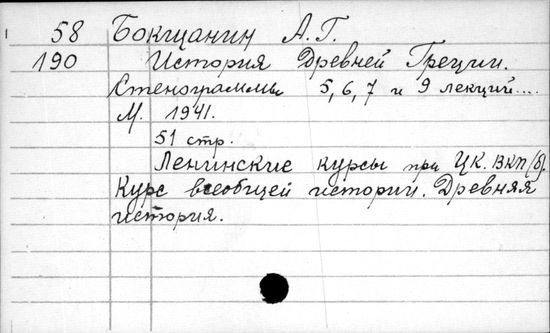 58 Бокщанин А. Г.
190 История Древней Греции.
Стенограммы 5, 6, 7 и 9 лекций...
М. 1941.
51 стр.
Ленинские курсы при ЦК. ВКП/б/.
Курс всеобщей истории. Древняя
история.